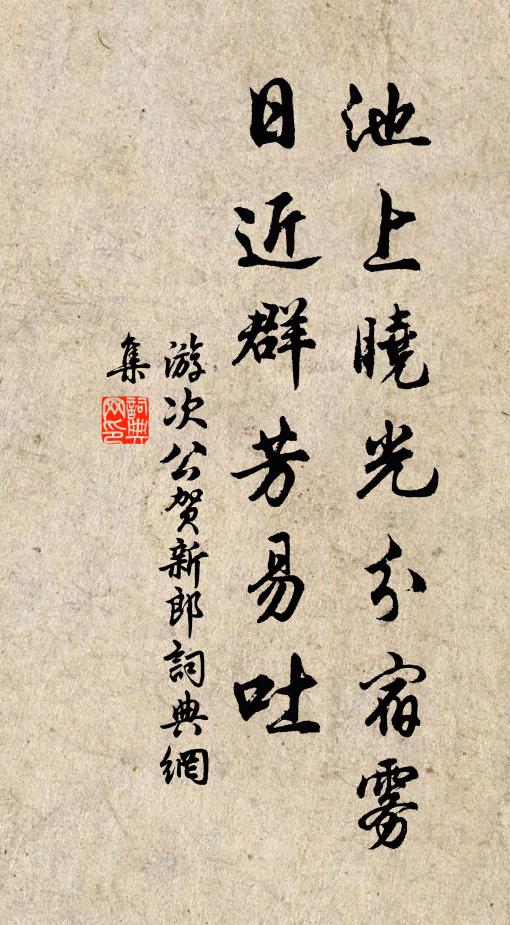 池上曉光分宿雾
日近群芳易吐
游次公贺新郎詞典網
集
詞典网印